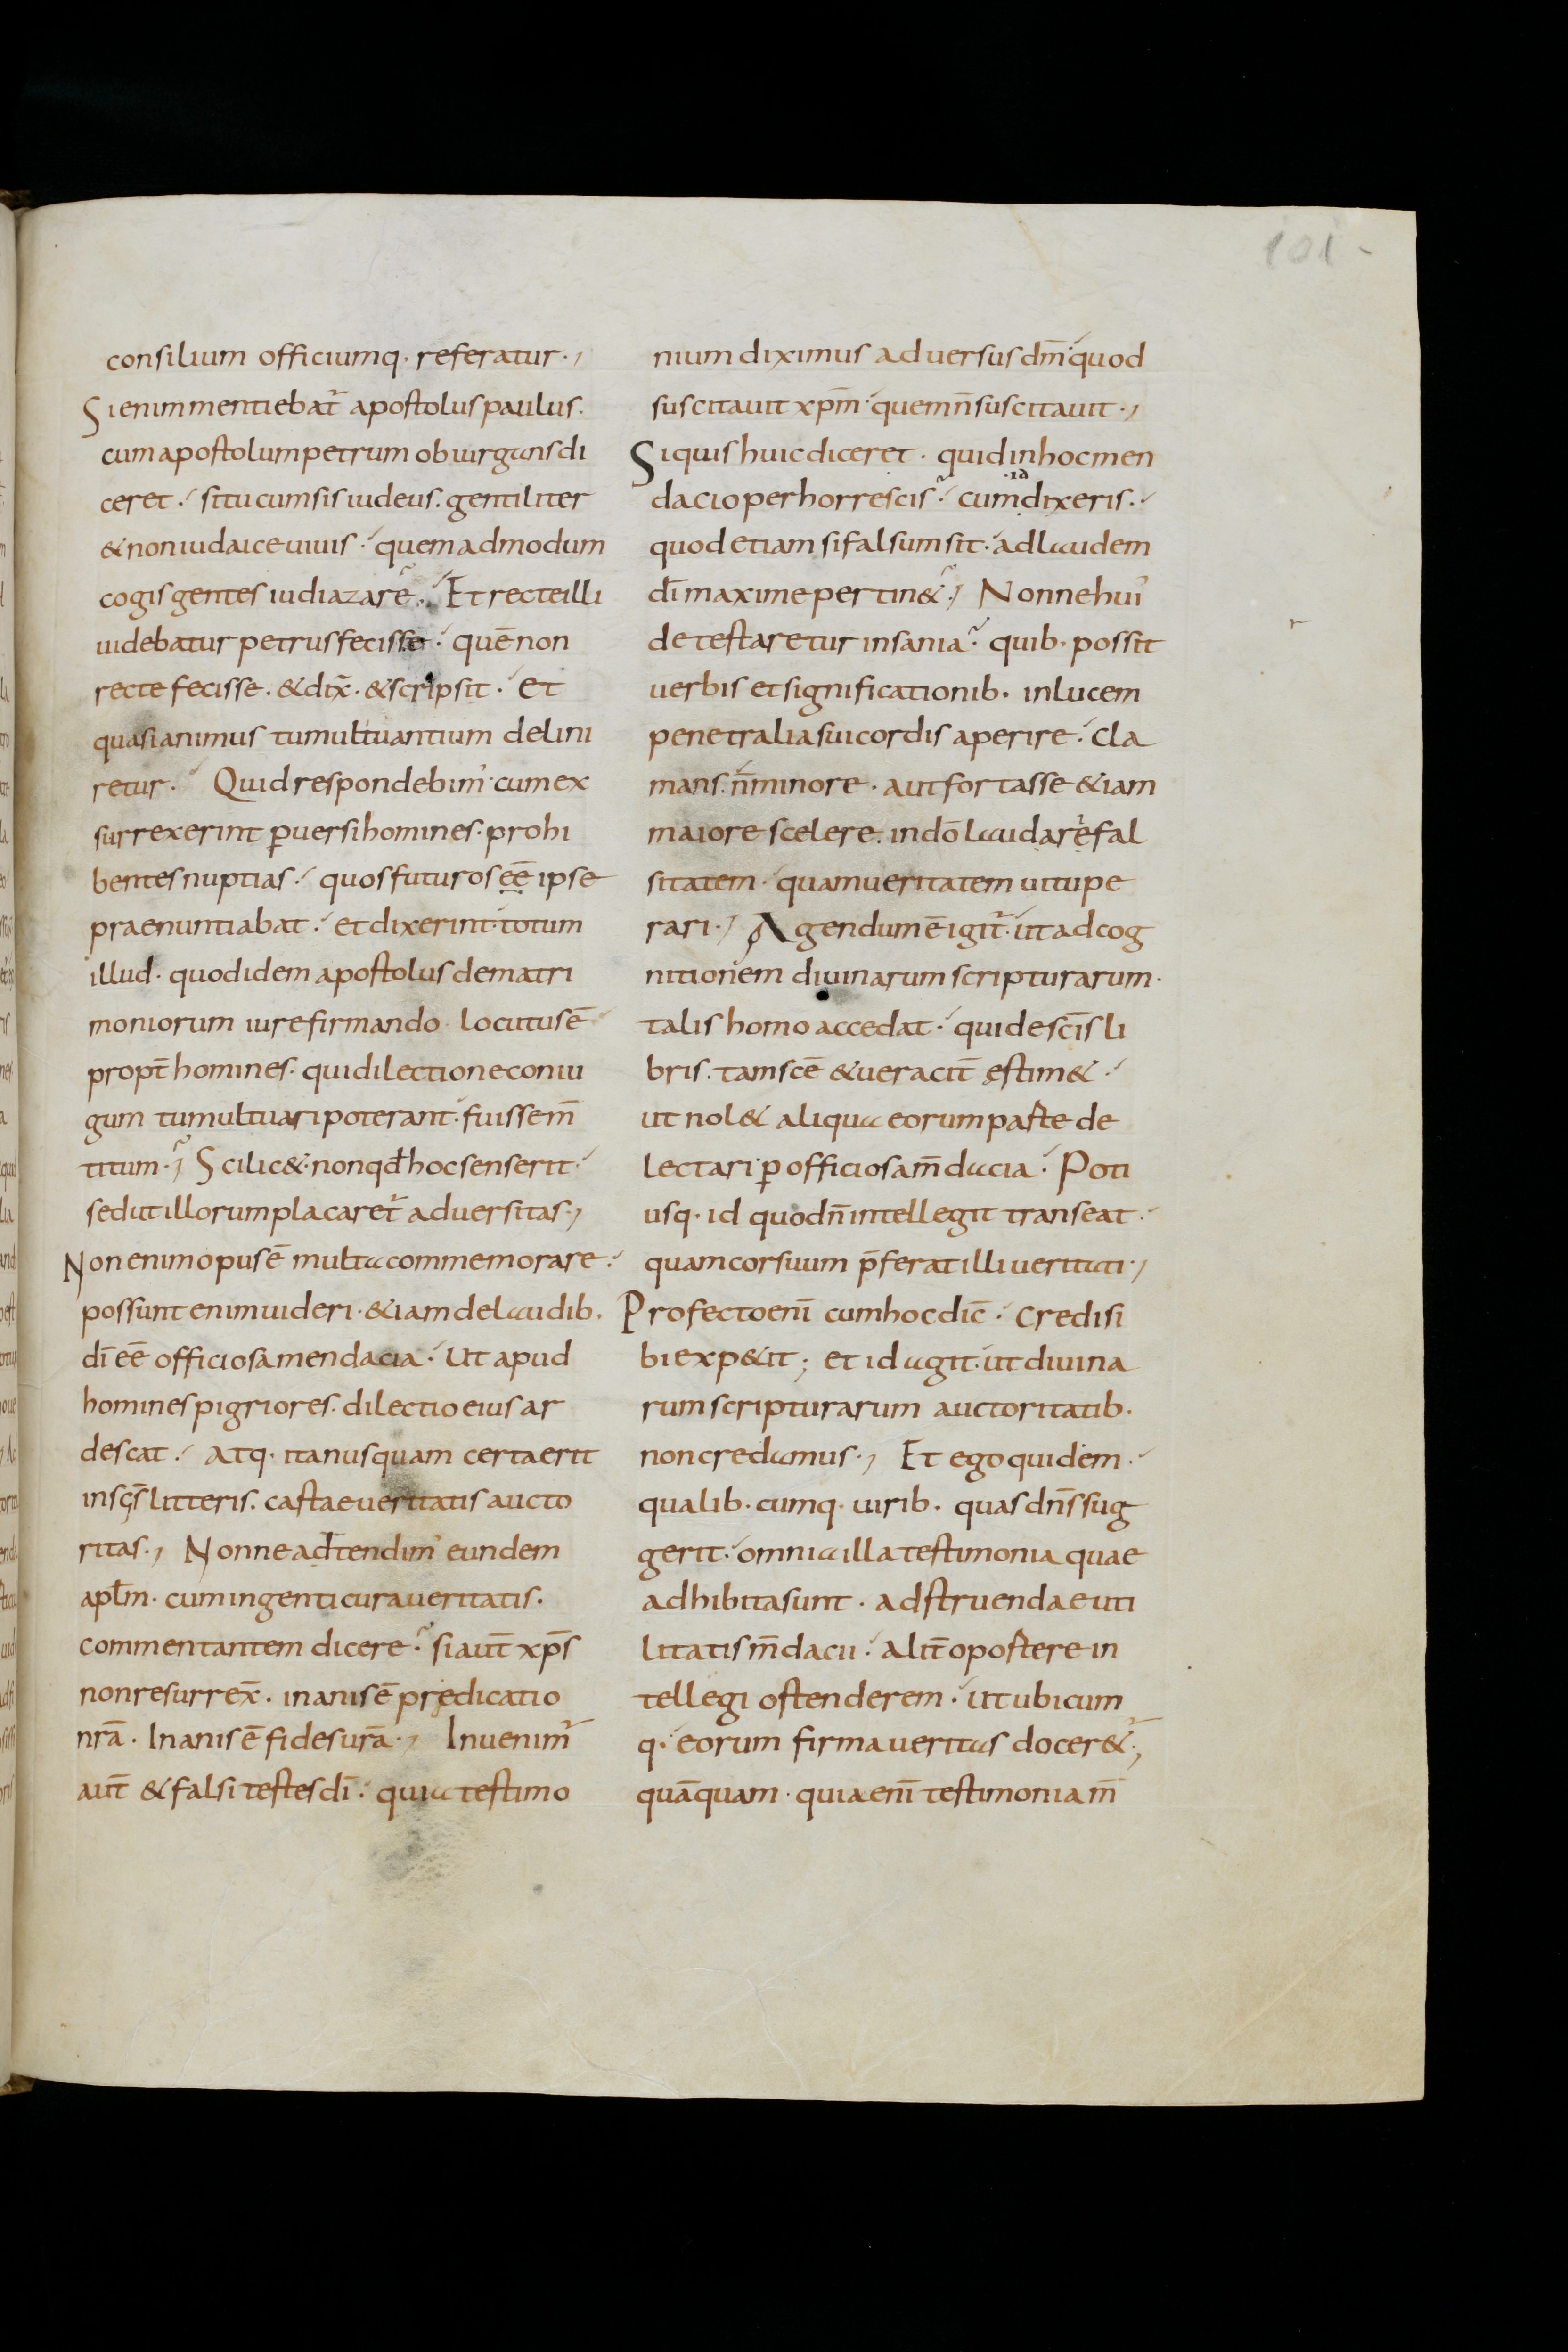 101
consilium officiumq· referatur·,
Sienim mentiebat᷑ apostolus paulus·
cum apostolum petrum obiurgans di
ceret· si tu cum sis iudeus· gentiliter
& non iudaice uiuis· quem admodum
cogis gentes iudiazare· Et recte illi
uidebatur petrus fecisse· quē non
recte fecisse· & dix̄· & scripsit· et
quasi animus tumultuantium delini
retur· Quid respondebim᾽ cum ex
surrexerint ꝑuersi homines· prohi
bentes nuptias· quos futuros eē ipse
praenuntiabat· et dixerint· totum
illud· quod idem apostolus de matri
moniorum iure firmando locutus ē
propt̄ homines· qui dilectione coniu
gum tumultuari poterant· fuisse m̄
titum·, Scilic&· non qđ hoc senserit·
sed ut illorum placaret᷑ aduersitas·,
Non enim opus ē multa commemorare·
possunt enim uideri· &iam de laudib·
dī eē officiosa mendacia· Ut apud
homines pigriores· dilectio eius ar
descat· Atq· ita nusquam certa erit
in sc̄s litteris· castae ueritatis aucto
ritas·, Nonne adtendim᾽ eundem
apłm· cum ingenti cura ueritatis·
commentantem dicere· si aut̄ xp̄s
non resurrex̄· inanis ē predicatio
nrā· Inanis ē fides urā·, Inuenim᷑
aut̄ & falsi testes dī· quia testimo
nium diximus aduersus dm̄· quod
suscitauit xpm̄· quem n̄ suscitauit·,
Si quis huic diceret· quid in hoc men
·id
dacio perhorrescis· cum dixeris·
quod etiam si falsum sit· ad laudem
dī maxime pertin&·, Nonne hui᾽
detestaretur insania· quib· possit
uerbis et significationib· in lucem
penetralia sui cordis aperire· Cla
mans· n̄ minore· aut fortasse &iam
maiore scelere· in dō laudare fal
sitatem· quam ueritatem uitupe
rari·, Agendum ē igit᷑· ut ad cog
nitionem diuinarum scripturarum·
talis homo accedat· qui de sc̄is li
bris· tam sc̄e & ueracit̄ estim&·
ut nol& aliqua eorum parte de
lectari ꝑ officiosa m̄dacia· Poti
usq· id quod n̄ intellegit transeat·
quam cor suum p̄ferat illi ueritati·,
Profecto enī cum hoc dic̄· Credi si
bi exp&it; et id agit· ut diuina
rum scripturarum auctoritatib·
non credamus·, Et ego quidem·
qualib·cumq· uirib· quas dn̄s sug
gerit· omnia illa testimonia quae
adhibita sunt· adstruendae uti
litatis m̄dacii· alit̄ oportere in
tellegi ostenderem· ut ubicum
q· eorum firma ueritas docer&᷑·,
quā quam· quia enī testimonia m̄